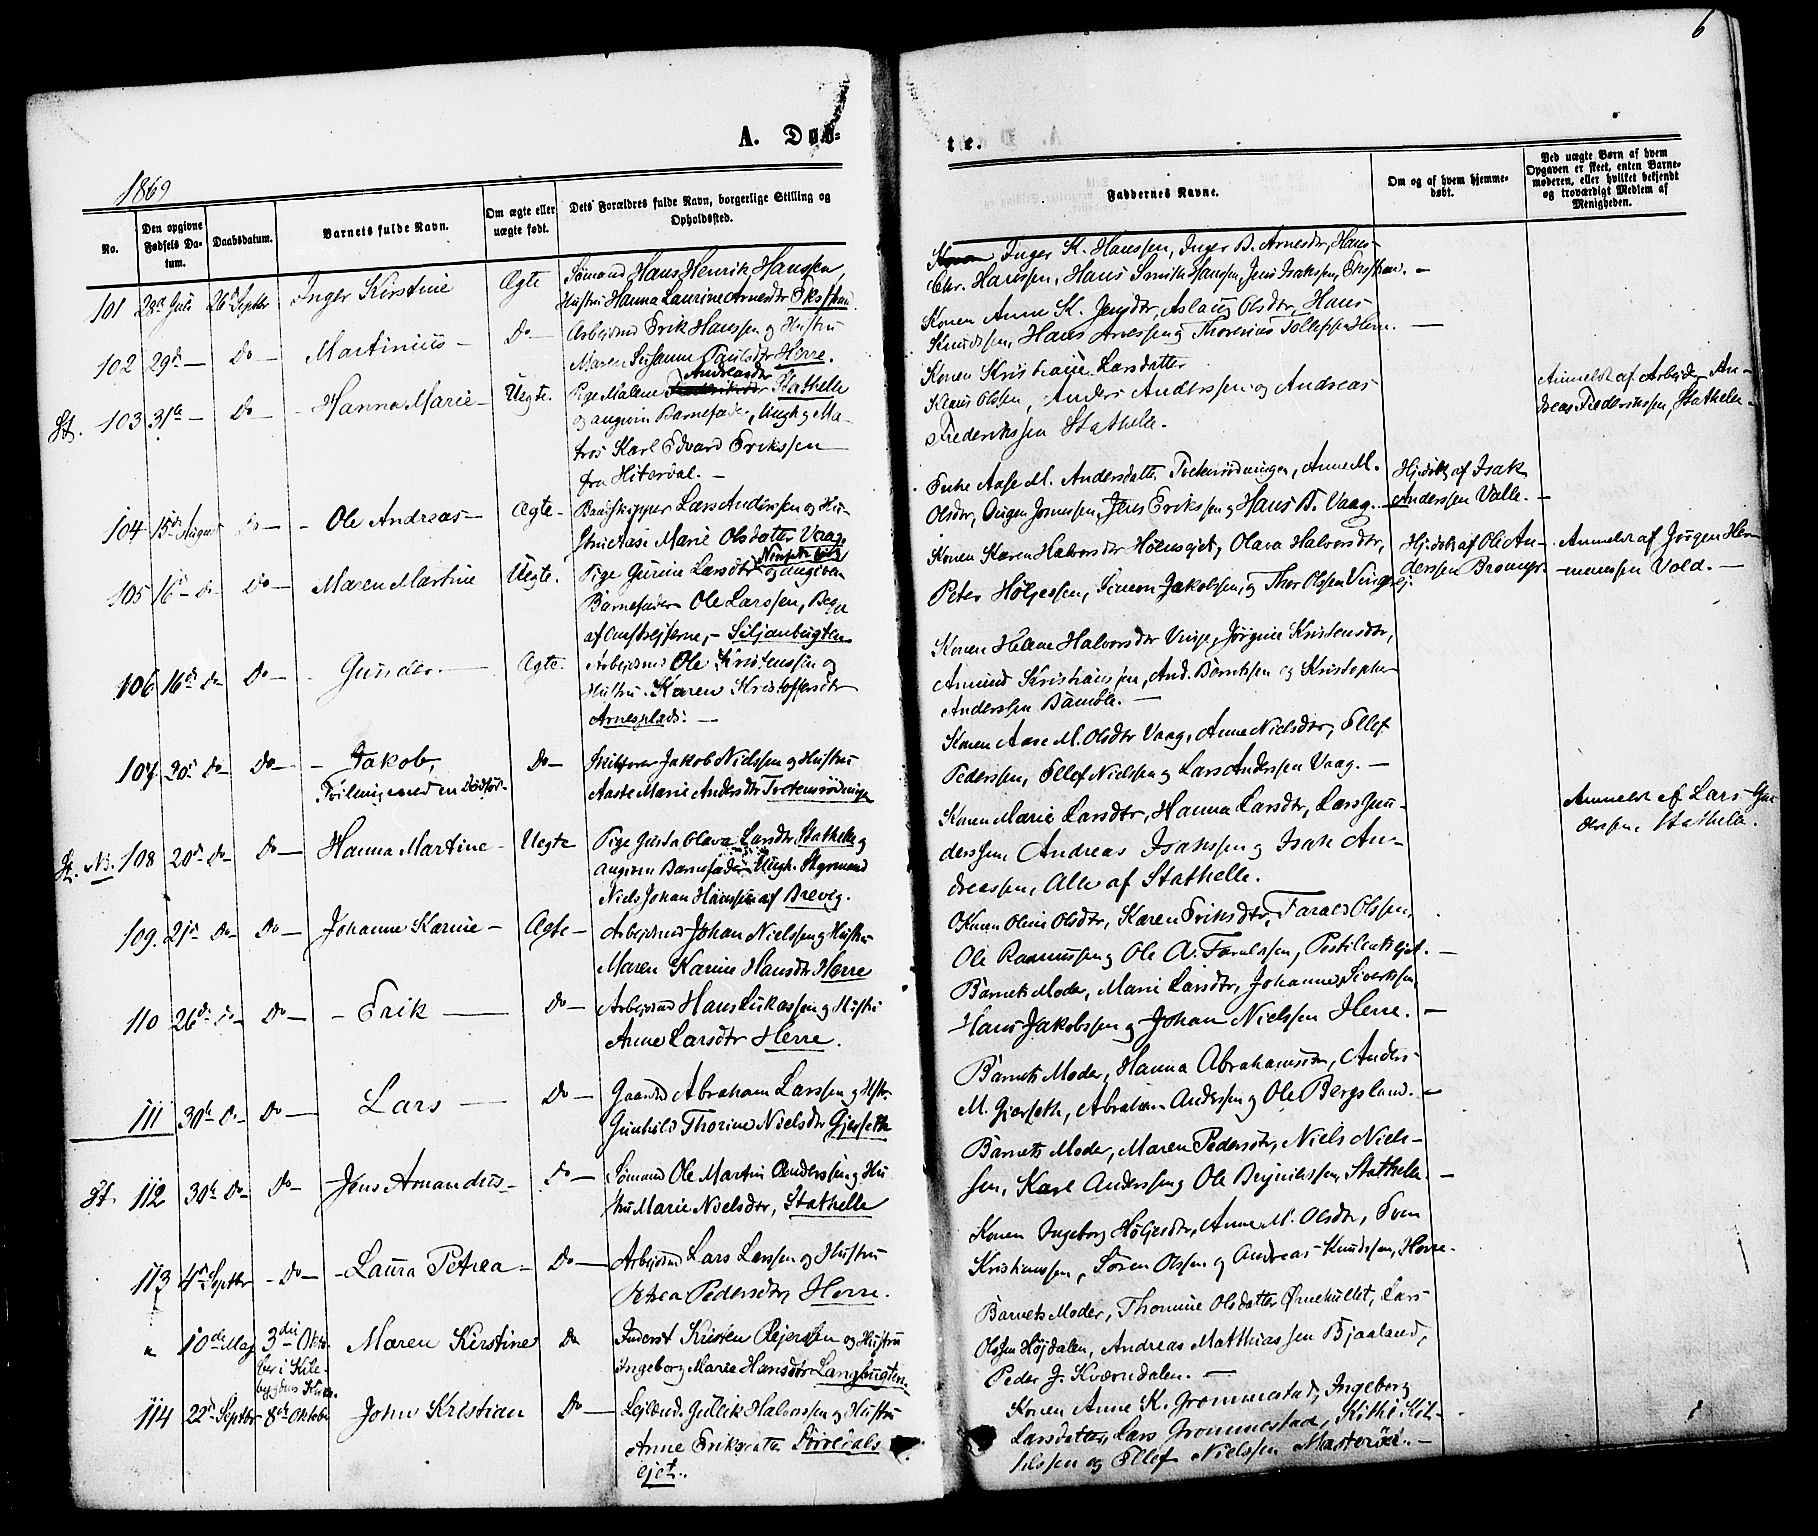 6
A. Døb-
te.
1869
No.
Den opgivne Fødsels Datum.
Daabsdatum.
Barnets fulde Navn.
Om ægte eller uægte født.
Dets Forældres fulde Navn, borgerlige Stilling og Opholdssted.
Faddernes Navne.
Om og af hvem hjemmedøbt.
Ved uægte Børn af hvem Opgaven er skeet, enten Barnemoderen, eller hvilket bekjendt og troværdigt Medlem af Menigheden.
101 28de Juli 26de Septbr Inger Kirstine Ægte
Sømand Hans Henrik Hanssen,
Hustru Hanna Laurine Arnesdtr Eksstrand.
Inger K. Hanssen, Inger B. Arnesdtr, Hans
Chr. Hanssen, Hans Smith Hansen, Jens Isaksen, Eksstrand. —
102 29de — Do — Martinius — Do —
Arbejdsmd Erik Hanssen og Hustru
Maren Susanne Paulsdtr Herre.
Konen Anne K. Jensdtr, Aslaug Olsdtr, Hans
Knudssen, Hans Arnessen og Thorenius Tollefsen Herre. —
St. 103 31te — Do — Hanna Marie — Uegte.
Pige Malene Andreasdtr Stathelle
og angiven Barnefader, Ungk. og Ma-
tros Karl Edvard Erikssen
fra Hiterdal. —
Konen Kristiane Larsdatter
Klaus Olssen, Anders Anderssen og Andreas
Frederikssen Stathelle.
Anmeldt af Arbejdr An-
dreas Frederikssen Stathelle —
104 15de August Do — Ole Andreas — Ægte —
Brugskipper Lars Anderssen og Hu-
stru Aase Marie Olsdatter Vaag.
Enke Aase M. Andersdatter Tvetenrødningen, Anne M.
Olsdtr, Jørgen Jonassen, Jens Erikssen og Hans B. Vaag. —
Hjdøbt af Isak
Anderssen Valle. —
105 16de Do Do — Maren Martine Uegte.
Pige Gurine Larsdtr og angiven
Barnefader Ole Larssen, Begge
af Omstrejferne, — Siljanbugten
Konen Karen Halvorsdtr Holmsejet, Olava Halvorsdtr,
Peter Holjessen, Simon Jakobssen, og Thor Olssen Vinje
Hjdøbt af Ole An-
derssen
Anmeldt af Jørgen Her-
manssen Vold. —
106 16de Do Do — Gunder — Ægte.
Arbejdsmd Ole Kristenssen og
Hustru Karen Kristoffersdtr
Arnesplads. —
Konen Helene Halvorsdtr Vinje, Jørgine Kristensdtr,
Amund Kristianssen, And. Berntssen og Kristopher
Anderssen Bamble. —
107 20de Do Do — Jakob, Do —
Tvilling med en Dødfød —
Jakob Nielssen og Hustru
Aaste Marie Andersdtr Tvetenrødningen
Konen Aase M. Olsdtr Vaag, Anne Nielsdtr, Ellef
Pederssen, Ellef Nielsen og Lars Anderssen Vaag. —
St. NB. 108 20de Do Do — Hanna Martine — Uegte
Pige Gusta Olava Larsdtr Stathelle og
angiven Barnefader Ungk. Styrmand
Niels Johan Hanssen af Brevig.
Konen Marie Larsdtr, Hanna Larsdtr, Lars Gun-
derssen, Andreas Isakssen og Isak An-
dreassen, Alle af Stathelle.
Anmeldt af Lars Gun-
derssen Stathelle.
109 21de Do Do — Johanne Karine — Ægte —
Arbejdsmd Johan Nielssen og Hustru
Maren Karine Hansdtr Herre
Konen Oline Olsdtr, Karen Eriksdtr, Farald Olssen,
Ole Rasmussen og Ole A. Faraldssen, —
110 26de Do Do — Erik — Do —
Arbejdsmd Hans Lukassen og Hustru
Anne Larsdtr Herre.
Barnets Moder, Marie Larsdtr, Johannes Sivertssen,
Hans Jakobssen og Johan Nielssen Herre. —
111 30te Do Do — Lars — Do —
Gaardmd Abraham Larssen og Hustru
Gunhild Thorine Nielsdtr Gjerseth
Barnets Moder, Hanna Abrahamsdtr, Anders
M. Gjerseth, Abraham Anderssen og Ole Bergsland. —
St. 112 30te Do Do — Jens Amandus — Do —
Sømand Ole Martin Anderssen og Hu-
stru Marie Nielsdtr, Stathelle
Barnets Moder, Maren Pedersdtr, Niels Niels-
sen, Karl Anderssen og Ole Brynildssen, Stathelle. —
113 4de Septbr — Do — Laura Petrea — Do —
Arbejdsmd Lars Larssen og Hustru
Petrea Pedersdtr, Herre.
Konen Ingeborg Holjesdtr, Anne M. Olsdtr, Sven
Kristianssen, Søren Olssen og Andreas Knudssen, Herre.
" 10de Maj 3die Okto-
ber i Kile-
bygdens Kirke. Maren Kirstine Do
Inderst Kristen Rejerssen og Hustru
Ingeborg Marie Hansdtr Langbugten.
Barnets Moder, Thomine Olsdatter Ørnekullet, Lars
Olssen Højdalen, Andreas Matthiassen Bjaaland,
Peder J. Kværndalen. —
114 22de Septbr 8de Oktober John Kristian Do —
Lejlænd. Gullik Halvorssen og Hustru
Anne Eriksdatter Sørdals-
ejet.
Konen Anne K. Grommestad, Ingeborg
Larsdatter, Lars Grommestad, Kittil Kit-
tilssen og Ellef Nielssen —